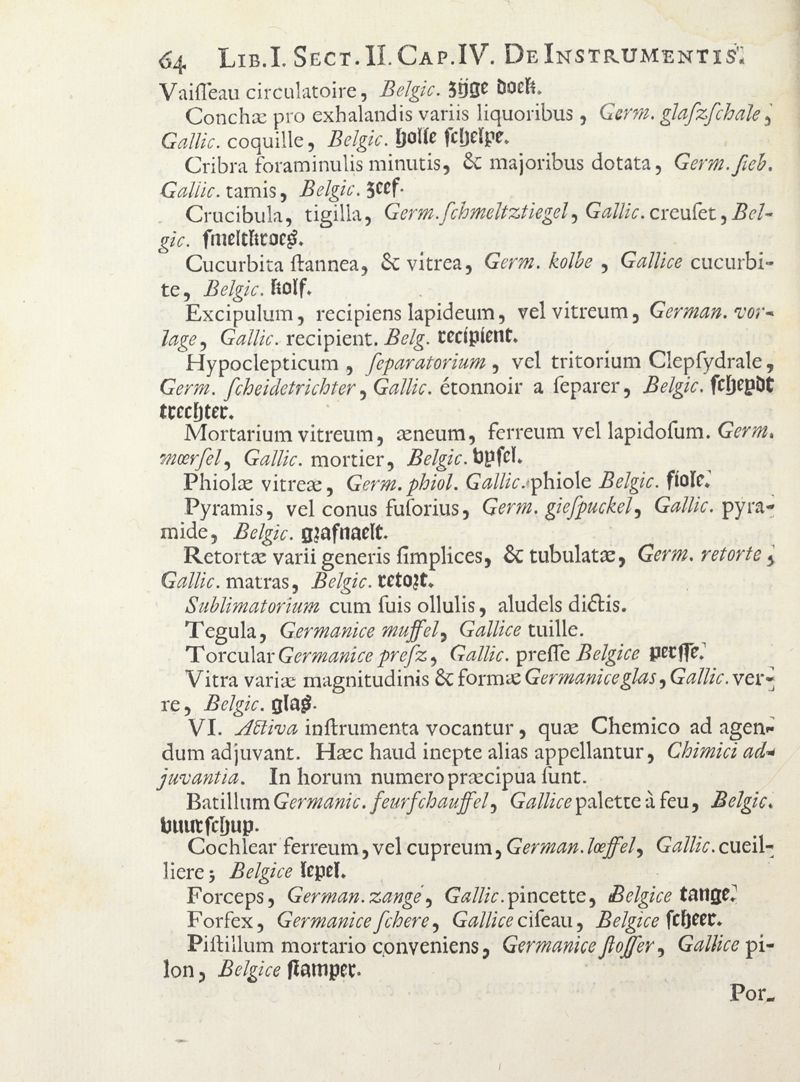 64 LIB.I. SECT.II. CAP.IV. DE INSTRUMENTIS.
Vaiſſeau circulatoire, Belgic. zijge doek.
Conchæ pro exhalandis variis liquoribus, Germ. glaſzſchale,
Gallic. coquille, Belgic. holle ſchelpe.
Cribra foraminulis minutis, & majoribus dotata, Germ. ſieb.
Gallic. tamis, Belgic. zeef.
Crucibula, tigilla, Germ. ſchmeltztiegel, Gallic. creuſet, Bel-
gic. ſmeltkroes.
Cucurbita ſtannea, & vitrea, Germ. kolbe, Gallice cucurbi-
te, Belgic. kolf.
Excipulum, recipiens lapideum, vel vitreum, German. vor-
lage, Gallic. recipient. Belg. recipient.
Hypoclepticum, ſeparatorium, vel tritorium Clepſydrale,
Germ. ſcheidetrichter, Gallic. étonnoir a ſeparer, Belgic. ſcheydt
trechter.
Mortarium vitreum, æneum, ferreum vel lapidoſum. Germ.
mœrſel, Gallic. mortier, Belgic. vyſel.
Phiolæ vitreæ, Germ. phiol. Gallic. phiole Belgic. fiole.
Pyramis, vel conus fuſorius, Germ. gieſpuckel, Gallic. pyra-
mide, Belgic. graſnaelt.
Retortæ varii generis ſimplices, & tubulatæ, Germ. retorte,
Gallic. matras, Belgic. retort.
Sublimatorium cum ſuis ollulis, aludels dictis.
Tegula, Germanice muffel, Gallice tuille.
Torcular Germanice preſz, Gallic. preſſe Belgice perſſe.
Vitra variæ magnitudinis & formæ Germanice glas, Gallic. ver-
re, Belgic. glas.
VI. Activa inſtrumenta vocantur, quæ Chemico ad agen-
dum adjuvant. Hæc haud inepte alias appellantur, Chimici ad-
juvantia. In horum numero præcipua ſunt.
Batillum Germanic. feurſchauffel, Gallice palette à feu, Belgic.
vuurſchup.
Cochlear ferreum, vel cupreum, German. lœffel, Gallic. cueil-
liere; Belgice lepel.
Forceps, German. zange, Gallic. pincette, Belgice tange.
Forfex, Germanice ſchere, Gallice ciſeau, Belgice ſcheer.
Piſtillum mortario conveniens, Germanice ſtoſſer, Gallice pi-
lon, Belgice ſtamper.
Por-